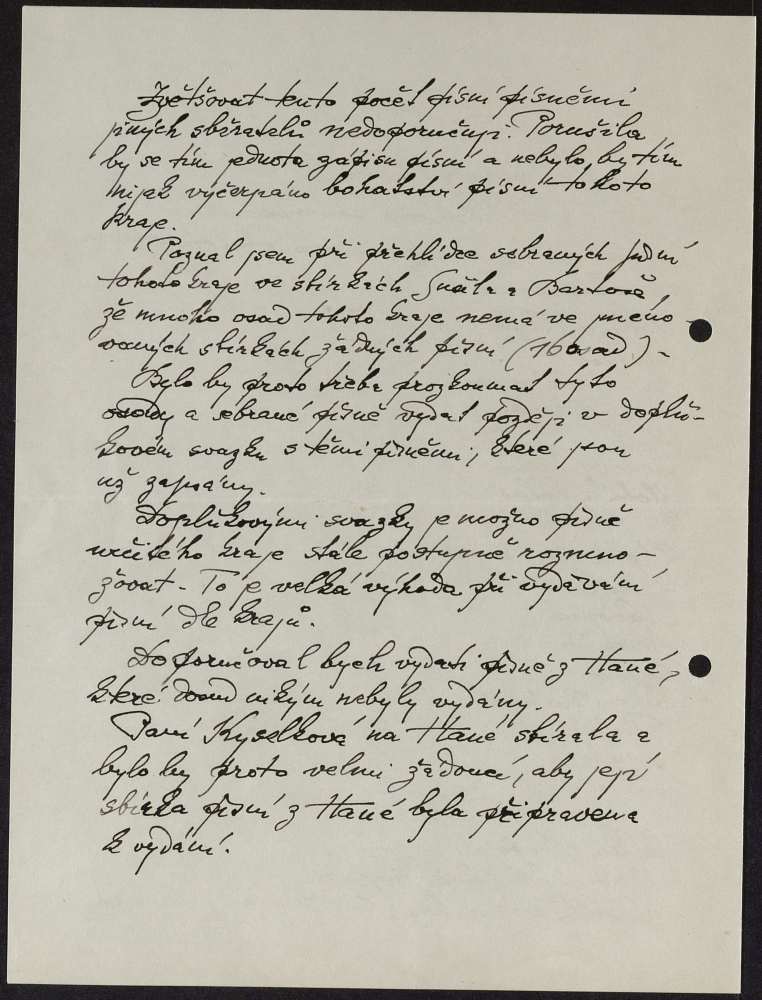 Zvětšovat tento počet písní písněmi
jiných sběratelů nedoporučuji. Porušila
by se tím jednota zápisu písní a nebylo by tím
nijak vyčerpáno bohatství písní tohoto
kraje.
Poznal jsem při přehlídce sebraných písní
tohoto kraje ve sbírkách Sušila a Bartoše,
že mnoho osad tohoto kraje nemá ve jmeno-
vaných sbírkách žádných písní (76 osad). -
Bylo by proto třeba prozkoumat tyto
osady a sebrané písně vydat později v doplň-
kovém svazku s těmi písněmi, které jsou
už zapsány.
Doplňkovými svazky je možno písně
určitého kraje stále postupně rozmno-
žovat - To je velká výhoda při vydávání
písní dle krajů.
Doporučoval bych vydati písně z Hané,
které dosud nikým nebyly vydány.
Paní Kyselková na Hané sbírala a
bylo by proto velmi žádoucí, aby její
sbírka písní z Hané byla připravena
k vydání.